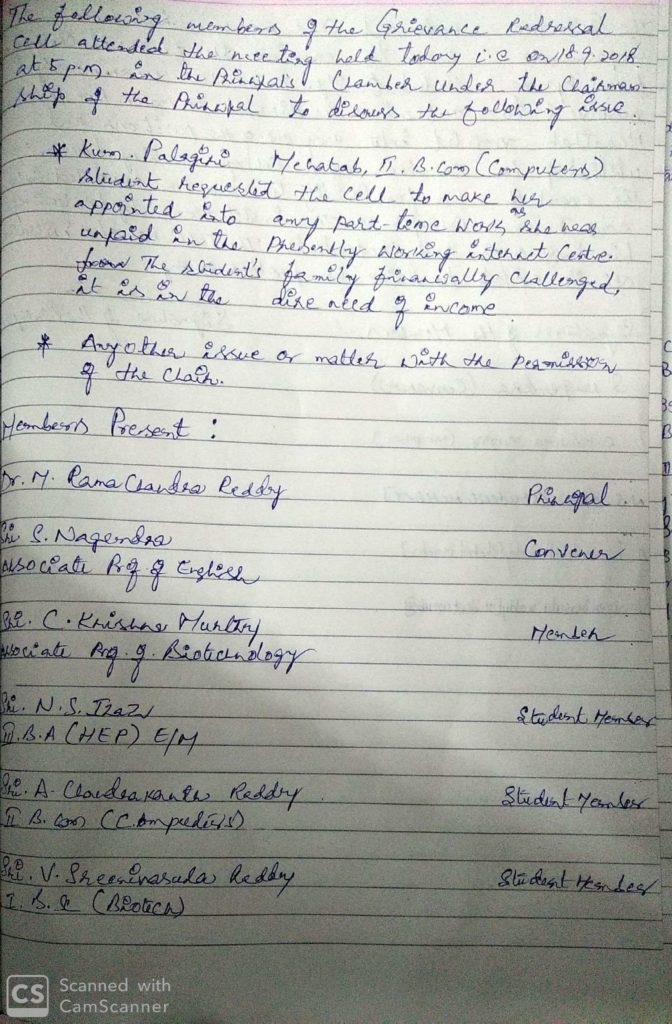 The following members of the Grievance Redressal
Cell attended the meeting held today i.e on 18.9.2018
at 5 p.m. in the Principal's Chamber under the Chairman-
ship of the Principal to discuss the following issue.
* Kum. Palagiri Mehatab, II. B.Com (Computers)
student requested the cell to make her
appointed into any part-time work as she was
unpaid in the presently working internet Centre.
The student's family financially challenged,
it is in the dire need of income
* Any other issue or matter with the permission
of the Chair.
Members Present :
Dr. M. Rama Chandra Reddy Principal.
Sri S. Nagendra Convener
Associate Prof of English
Sri. C. Krishna Murthy Member
Associate Prof. of. Biotechnology
Sri. N.S. Izaz Student Member
II.B.A (HEP) E/M
Sri. A. Chandrakanth Reddy Student Member
II B. Com (Computers)
Sri. V. Sreenivasula Reddy Student Member
I. B. Sc (Biotech)
CS Scanned with
CamScanner